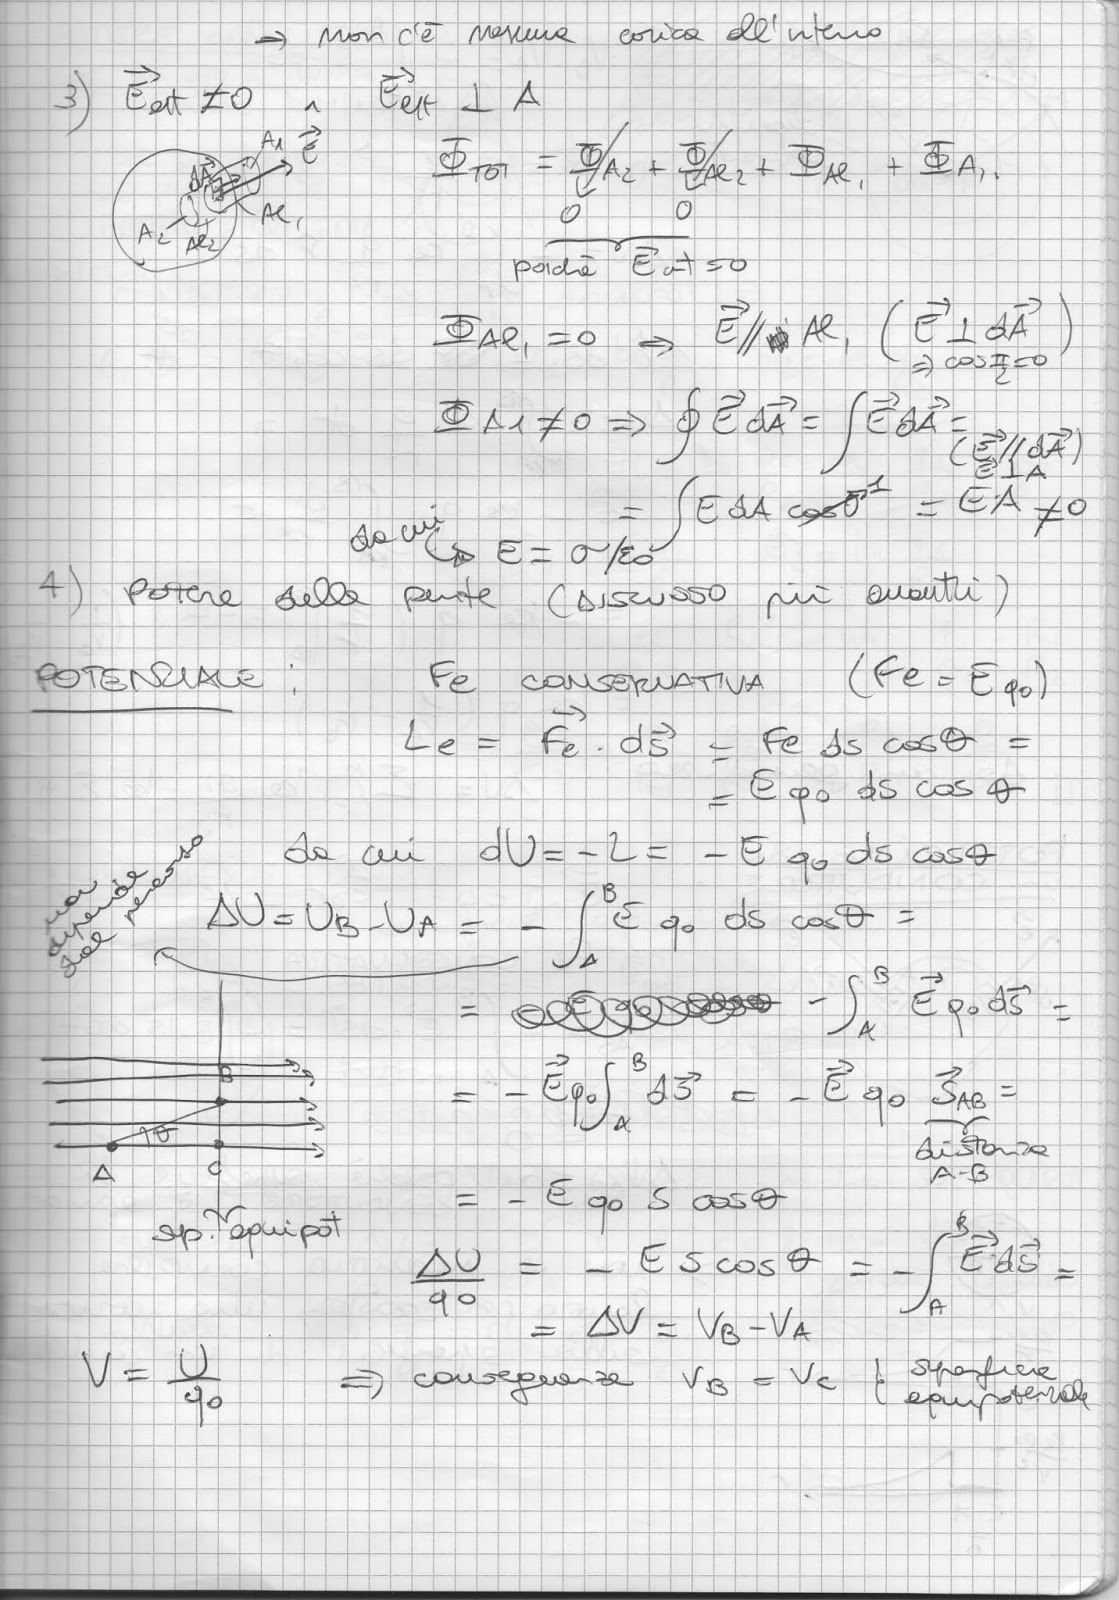 → non c'è nessuna carica all'interno
3) E⃗est ≠ 0 ∧ E⃗est ⊥ A
A1 E⃗
dA⃗
A2 Aℓ2 Aℓ1
ΦTOT = ΦA2 + ΦAℓ2 + ΦAℓ1 + ΦA1.
0 0
poiché E⃗int = 0
ΦAℓ1 = 0 ⇒ E⃗ // Aℓ1 (E⃗ ⊥ dA⃗)
⇒ cos π/2 = 0
ΦA1 ≠ 0 ⇒ ∮ E⃗ dA⃗ = ∫ E⃗ dA⃗ =
(E⃗ // dA⃗)
E⃗ ⊥ A
= ∫ E dA cosθ 1 = E A ≠ 0
da cui ↳ E = σ/ε0
4) Potere delle punte (DISCUSSO più avanti)
POTENZIALE : Fe CONSERVATIVA (Fe = E q0)
Le = F⃗e · ds⃗ = Fe ds cosθ =
= E q0 ds cosθ
da cui dU = - L = - E q0 ds cosθ
non dipende dal percorso
ΔU = UB - UA = - ∫AB E q0 ds cosθ =
= - ∫AB E⃗ q0 ds⃗ =
= - E⃗ q0 ∫AB ds⃗ = - E⃗ q0 S⃗AB =
distanza
A-B
B
θ
A C
sp. equipot
= - E q0 S cosθ
ΔU/q0 = - E S cosθ = - ∫AB E⃗ ds⃗ =
= ΔV = VB - VA
V = U/q0 ⇒ conseguenza VB = VC { superficie
equipotenziale